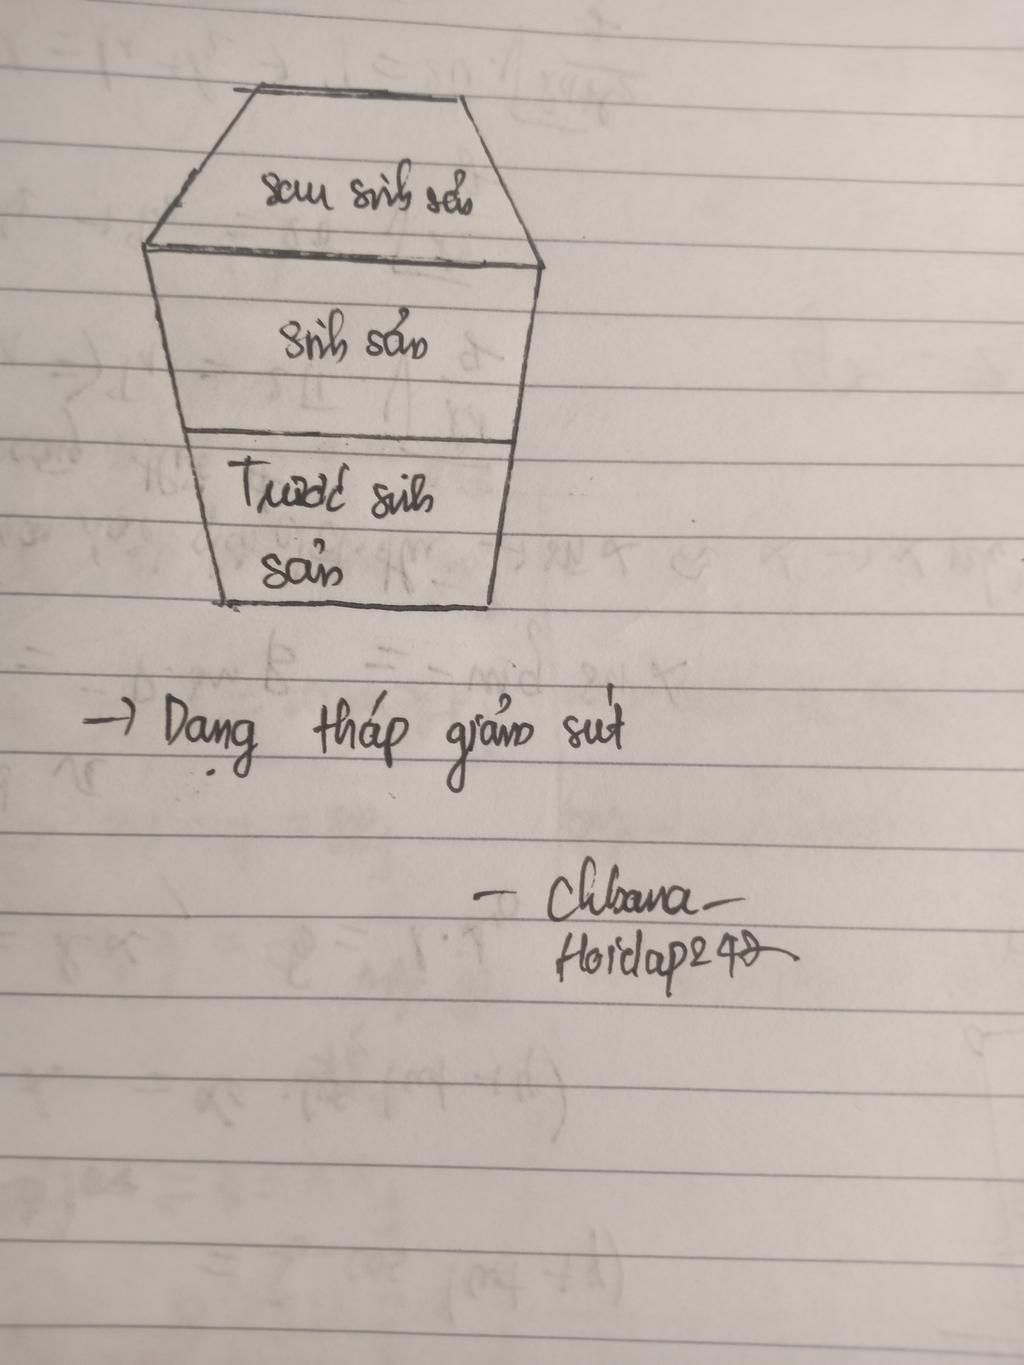 sau sinh sản
sinh sản
Trước sinh
sản
→ Dạng tháp giảm sút
- Chbana -
Hoidap247